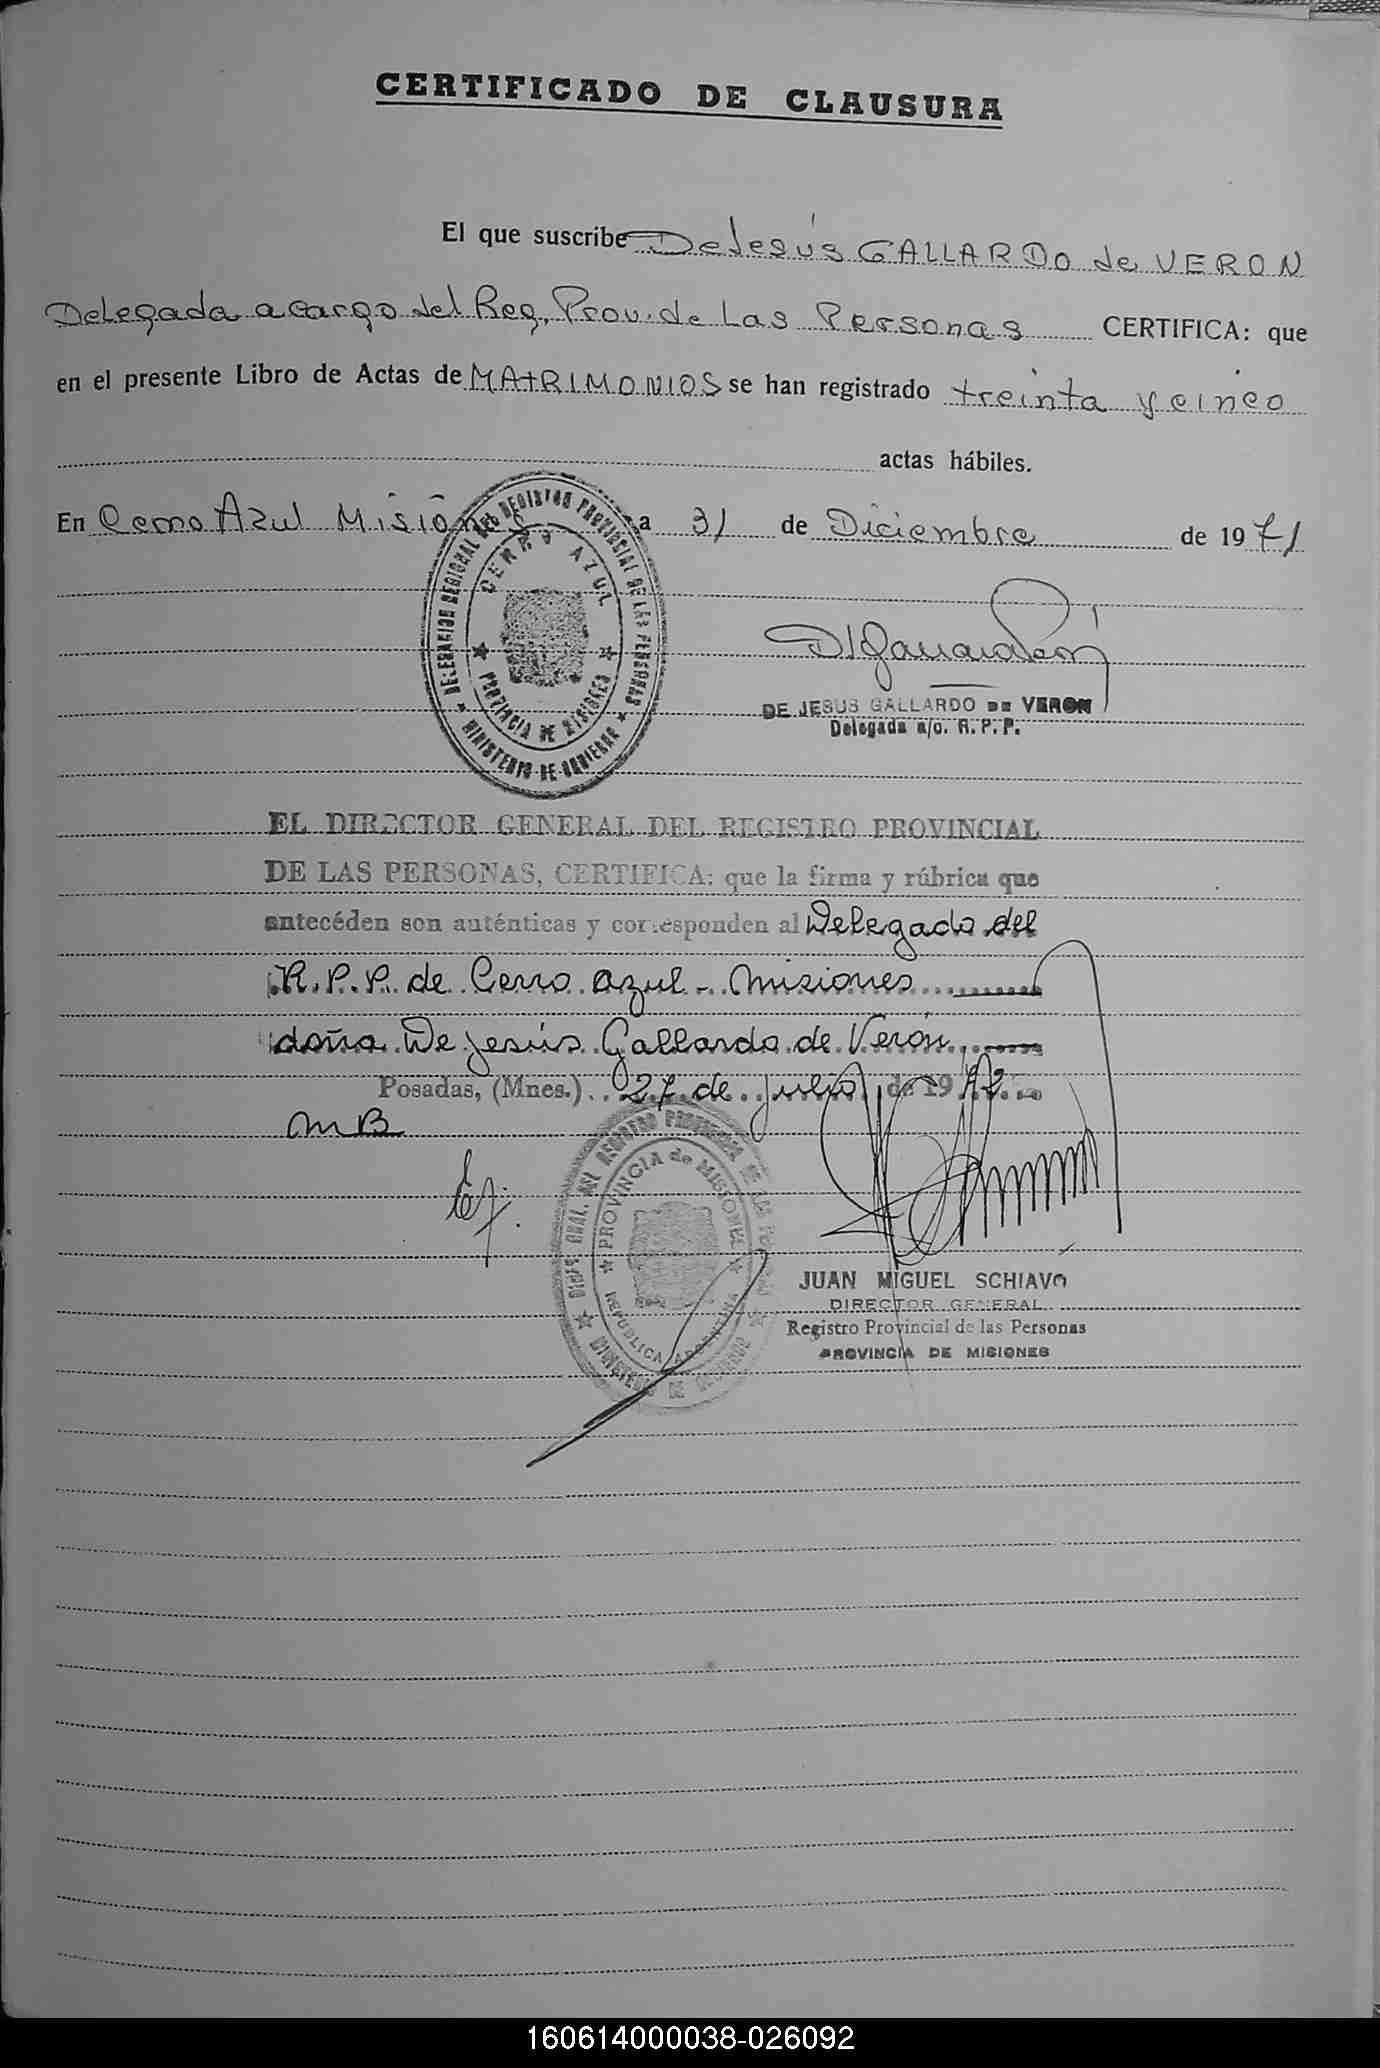 CERTIFICADO DE CLAUSURA
El que suscribe De Jesús GALLARDO de VERON
Delegada a cargo del Reg. Prov. de Las Personas CERTIFICA: que
en el presente Libro de Actas de MAtRIMONIOS se han registrado treinta y cinco
actas hábiles.
En Cerro Azul Misiones a 31 de Diciembre de 1971
DELEGACION REGIONAL DEL REGISTRO PROVINCIAL DE LAS PERSONAS
CERRO AZUL
PROVINCIA DE MISIONES
MINISTERIO DE GOBIERNO
DE JESUS GALLARDO DE VERON
Delegada a/c. R. P. P.
EL DIRECTOR GENERAL DEL REGISTRO PROVINCIAL
DE LAS PERSONAS, CERTIFICA: que la firma y rúbrica que
antecéden son auténticas y corresponden al Delegado del
R. P. P. de Cerro Azul - Misiones
doña De Jesús Gallardo de Verón
Posadas, (Mnes.) 27 de Julio de 1972
MB
Ej.
PROVINCIA de MISIONES
REPUBLICA ARGENTINA
MINISTERIO DE GOBIERNO
JUAN MIGUEL SCHIAVO
DIRECTOR GENERAL
Registro Provincial de las Personas
PROVINCIA DE MISIONES
160614000038-026092